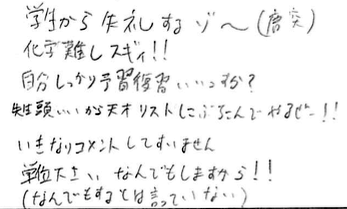 学生から失礼するゾ〜(唐突)
化学難しスギィ!!
自分しっかり予習復習いいっすか?
先生頭いいから天才リストにぶちこんでやるぜー!!
いきなりコメントしてすいません
単位大さい なんでもしますから!!
(なんでもするとは言っていない)